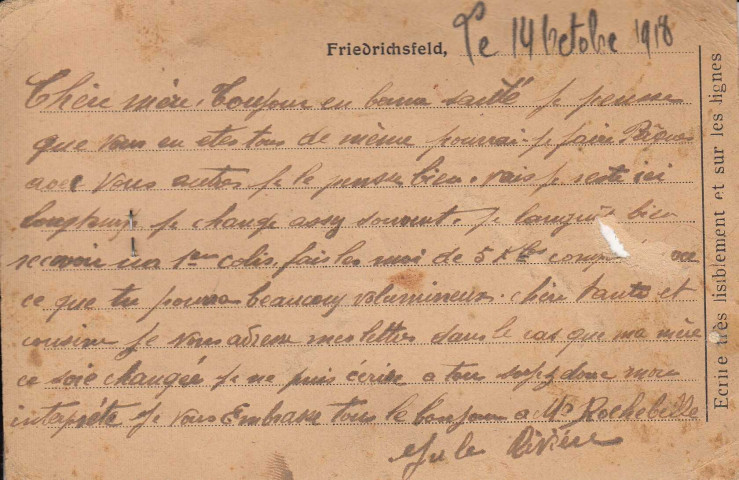 Friedrichsfeld, Le 14 Octobre 1918
Chère mère, Toujour en bonne santé je pense
que vous en etes tous de même pourrai-je faire Pâques
avec vous autres je le pense bien. vais je resté ici
longtemps je change assez souvent. je languis bien
recevoir un 1er colis, fais les moi de 5 Klos
ce que tu pourras beaucoup volumineux. chère tante et
cousine je vous adresse mes lettres dans le cas que ma mère
ce soit changée je ne puis écrire a tous soyez donc mon
interprète je vous Embrasse tous le bonjour a Mr Rochebelle
Jules Rivière
Ecrire très lisiblement et sur les lignes